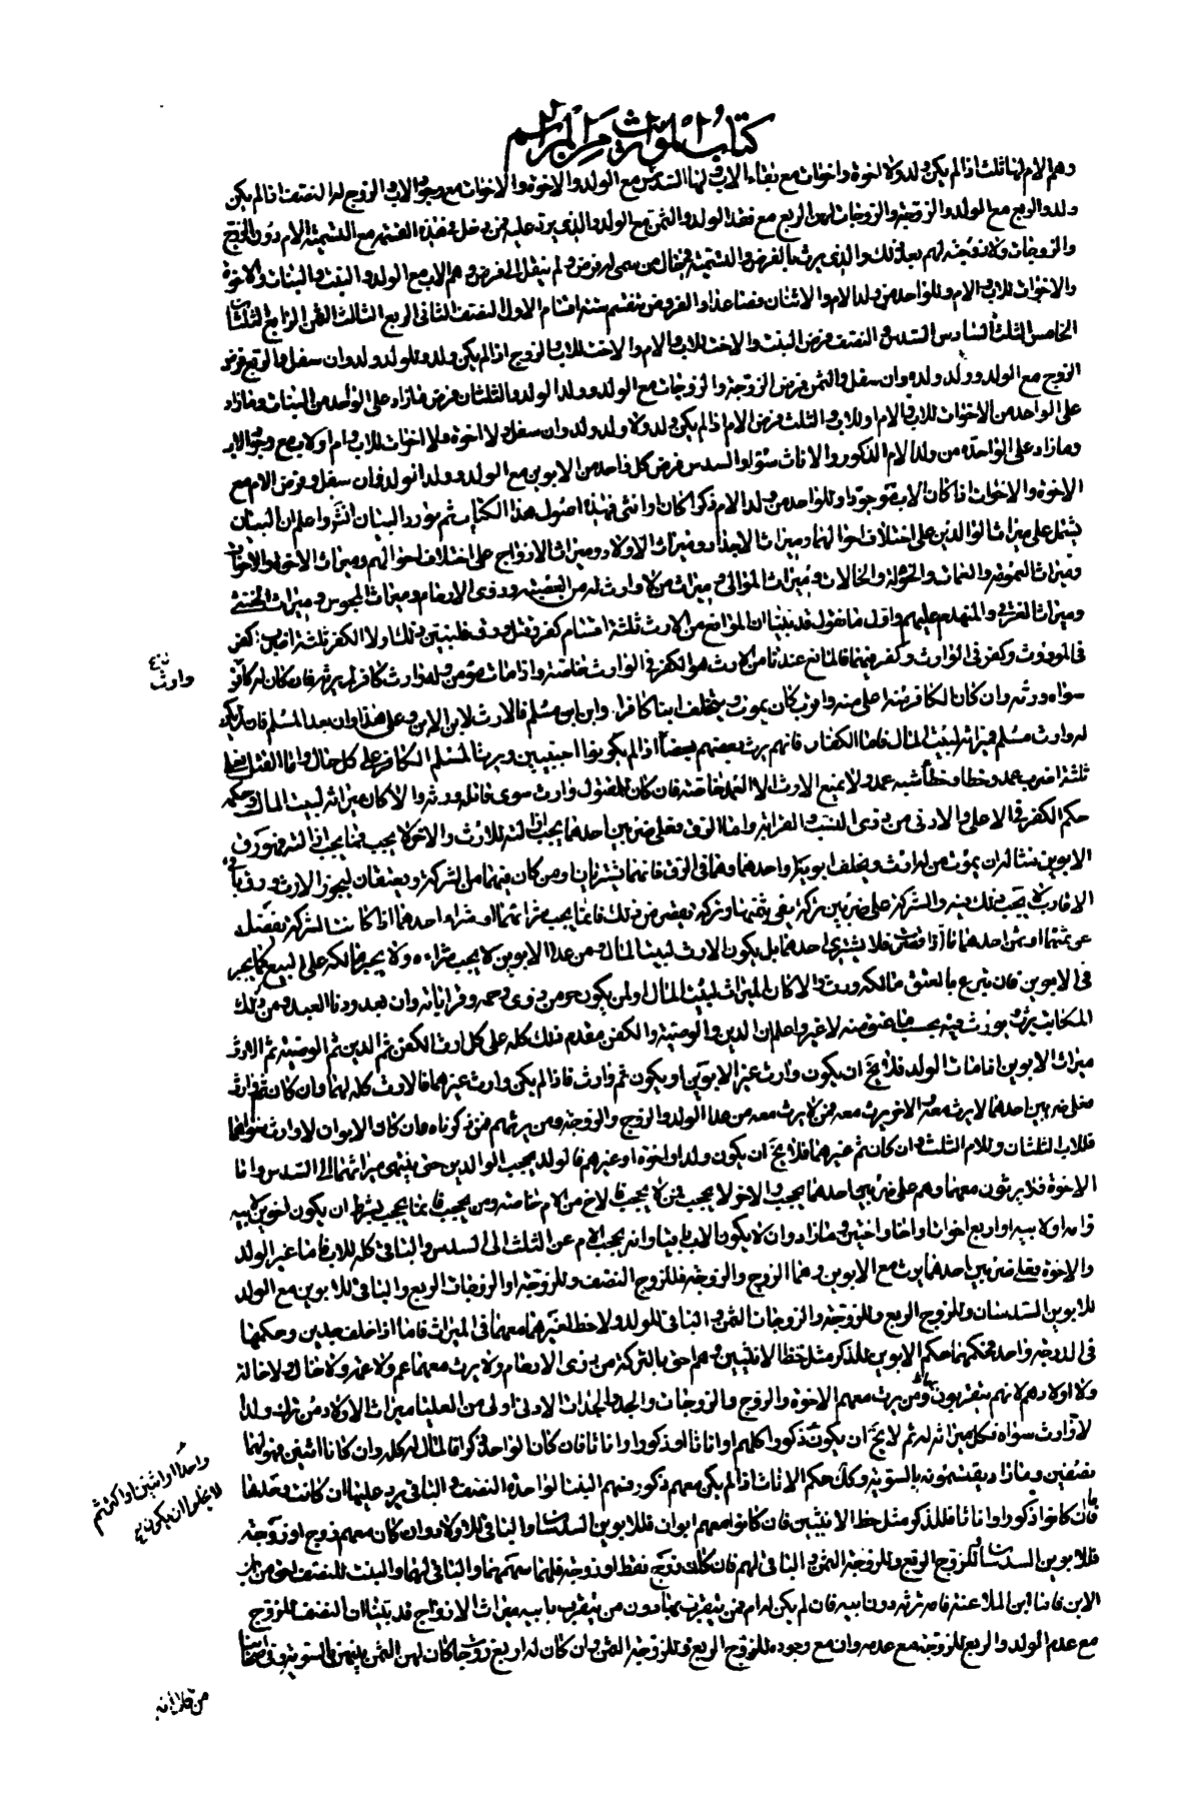 كتاب المواريث من المراسم
وهم الام لها ثلث اذا لم يكن ولد ولا اخوة واخوات مع بقاء الاب و لها السدس مع الولد والاخوة والاخوات مع وجود الاب والزوج له النصف اذا لم يكن
ولد والربع مع الولد والزوجة والزوجات لهن الربع مع فقد الولد والثمن مع الولد والذى يرد عليه من دخل فى هذه القسمة مع التسمية الام دون الزوج
والزوجات ولا زوجة لهم بعد ذلك والذى يرث بالفرض والتسمية فحال من سمى له فرض ولم ينتقل الى فرض وهم الاب مع الولد والبنت والبنات والاخوة
والاخوات للاب والام وللواحد من ولد الام والاثنان فصاعدا والفروض تنقسم ستة اقسام الاول النصف الثانى الربع الثالث الثمن الرابع الثلثان
الخامس الثلث السادس السدس و النصف فرض البنت والاخت للاب والام والاخت للاب والزوج اذا لم يكن ولد ولا ولد ولد وان سفل والربع فرض
الزوج مع الولد وولد ولده وان سفل والثمن فرض الزوجة والزوجات مع الولد وولد الولد والثلثان فرض ما زاد على الواحد من البنات وما زاد
على الواحد من الاخوات للاب والام او للاب والثلث فرض الام اذا لم يكن ولد ولا ولد ولد وان سفل ولا اخوة ولا اخوات للاب وام او لاب مع وجود الاب
وما زاد على الواحد من ولد الام الذكور والاناث سواء والسدس فرض كل واحد من الابوين مع الولد وولد الولد وان سفل وفرض الام مع
الاخوة والاخوات اذا كان الاب موجودا وللواحد من ولد الام ذكرا كان او انثى فهذه اصول هذا الكتاب ثم نورد البيان واعلم ان البيان
يشمل على ميراث الوالدين على اختلاف احوالهما وميراث الاجداد وميراث الاولاد وميراث الازواج على اختلاف احوالهم وميراث الاخوة والاخوات
وميراث العمومة والعمات والخؤلة والخالات وميراث الموالى و ميراث من لا وارث له من العصبة وذوى الارحام وميراث المجوس وميراث الخنثى
وميراث الغرقى والمهدوم عليهم واول ما نقول قد بينا ان الموانع من الارث ثلثة اقسام كفر وقتل ورق فلنبين ذلك اولا الكفر ثلثة اضرب كفر
فى الموروث وكفر فى الوارث وكفر فيهما فالمانع عندنا من الارث هو الكفر فى الوارث خاصة واذا مات مؤمن وله وارث كافر لم يرثه فان كان له كافر
وارث
سواه ورثه وان كان الكافر منه اعلى منه واقرب كان يموت ويخلف ابنا كافرا وابن ابن مسلم فالارث لابن الابن وعلى هذا وان بعد المسلم فان لم يكن
له وارث مسلم فميراثه لبيت المال فاما الكفار فانهم يرث بعضهم بعضا اذا لم يكونوا اجنبيين ويرث المسلم الكافر على كل حال واما القتل فعلى
ثلثة اضرب عمد وخطا وخطأ شبه عمد ولا يمنع الارث الا العمد خاصة فان كان للمقتول وارث سوى قاتله ورثه والا كان ميراثه لبيت المال وحكمه
حكم الكفر فى الاعلى والادنى من ذوى النسب والقرابة واما الرق فعلى ضربين احدهما يجب ازالته للارث والاخر لا يجب فما يجب ازالته فهو رق
الابوين مثاله ان يموت من له ارث ويخلف ابويه او احدهما وهما فى الرق فانهما يشتريان ومن كان منهما من التركة ويعتقان ليجوز الارث ورق باقى
الاقارب لا يجب ذلك فيه والتركة على ضربين تركة يفى بثمنهما وتركة تعجز عن ذلك فانما يجب شرائهما او شراء احدهما اذا كانت التركة تفضل
عن ثمنهما او ثمن احدهما فاذا نقصت فلا يشترى احدهما بل يكون الارث لبيت المال ومن عدا الابوين لا يجب شراءه ولا يجبر مالكه على البيع كما يجبر
فى الابوين فان تبرع بالعتق مالكه ورث والا كان الميراث لبيت المال او لمن يكون حر من ذوى رحمه وقراباته وان بعد دون العبد ومن ذلك
المكاتب يرث ويورث منه بحسب ما عتق منه لا غير واعلم ان الدين والوصية والكفن مقدم ذلك كله على كل ارث الكفن ثم الدين ثم الوصية ثم الارث
ميراث الابوين اذا مات الولد فلا يخ ان يكون وارث غير الابوين او يكون ثم وارث فاذا لم يكن وارث غيرهما فالارث كله لهما وان كان ثم وارث
فعلى ضربين احدهما لا يرث معه والاخر يرث معه فمن لا يرث معه من عدا الولد والزوج والزوجة ومن يرثهم فمن ذكرناه فان كان الابوان لا وارث سواهما
فللاب الثلثان وللام الثلث وان كان ثم غيرهما فلا يخ ان يكون ولد او اخوة او غيرهم فالولد يحجب الوالدين حتى ينتهى ميراثهما الى السدس واما
الاخوة فلا يرثون معهما وهم على ضربين احدهما يحجب والاخر لا يحجب فمن لا يحجب فالاخ من الام خاصة ومن يحجب فانما يحجب بشرط ان يكون اخوين لابيه
وامه او لابيه او اربع اخوات او اخا واختين وما زاد وان لا يكون الاب ميتا وانه يحجب الام عن الثلث الى السدس والباقى كله للاب فاما غير الولد
والاخوة فعلى ضربين احدهما يرث مع الابوين وهما الزوج والزوجة فللزوج النصف وللزوجة او الزوجات الربع والباقى للابوين مع الولد
للابوين السدسان وللزوج الربع وللزوجة والزوجات الثمن و الباقى للولد ولا حظ لغيرهما معهما فى الميراث فاما اذا خلف جدين وحكمهما
فى الدرجة واحد فحكمهما حكم الابوين للذكر مثل حظ الانثيين وهم احق بالتركة من ذوى الارحام ولا يرث معهما عم ولا عمة ولا خال ولا خالة
ولا اولادهم لانهم يتقربون بهما ومن يرث معهم الاخوة والزوج والزوجات والجد والجدات الادنى اولى من العليا ميراث الاولاد من ترك ولدا
لا وارث سواه فكل ميراثه له ثم لا يخ ان يكون ذكورا كلهم او اناثا او ذكورا واناثا فان كان الواحد ذكرا فالمال له كله وان كانا اثنين فهو لهما
واحدا او اثنين او اكثر ثم
لا يخلو ان يكون
نصفين وما زاد يقتسمونه بالسوية وكك حكم الاناث اذا لم يكن معهم ذكور فسهم البنت الواحدة النصف والباقى يرد عليها ان كانت وحدها
فان كانوا ذكورا واناثا فللذكر مثل حظ الانثيين فان كانوا معهم ابوان فللابوين السدسان والباقى للاولاد وان كان معهم زوج او زوجة
فللابوين السدسان وللزوج الربع وللزوجة الثمن و الباقى لهم فان كان زوج فقط او زوجة فلهما سهمهما والباقى لهما والبنت للنصف احق من ابن
الابن فاما ابن الملاعنة فامه ترثه دون ابيه فان لم يكن له ام فمن يتقرب بها دون من يتقرب بابيه ميراث الازواج قد بينا ان النصف للزوج
مع عدم الولد والربع للزوجة مع عدمه وان مع وجوده للزوج الربع وللزوجة الثمن وان كان له اربع زوجات كان لهن الثمن بينهن بالسوية وفى اصحابنا
من قال انه